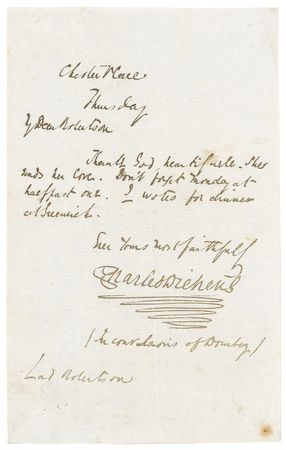 Chester Place
Thursday
My Dear Robertson
Thank God beautifully. She
sends her love. Don't forget Monday at
halfpast one. I wrote for dinner
at Greenwich.
Ever Yours most faithfully
Charles Dickens
(In convulsions of Dombey)
Lord Robertson